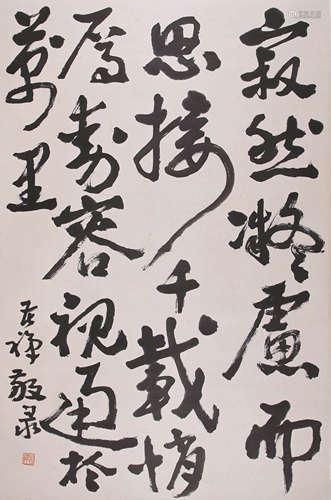 寂然凝慮而
思接千載悄
焉動容視通於
萬里
苦禅敬录